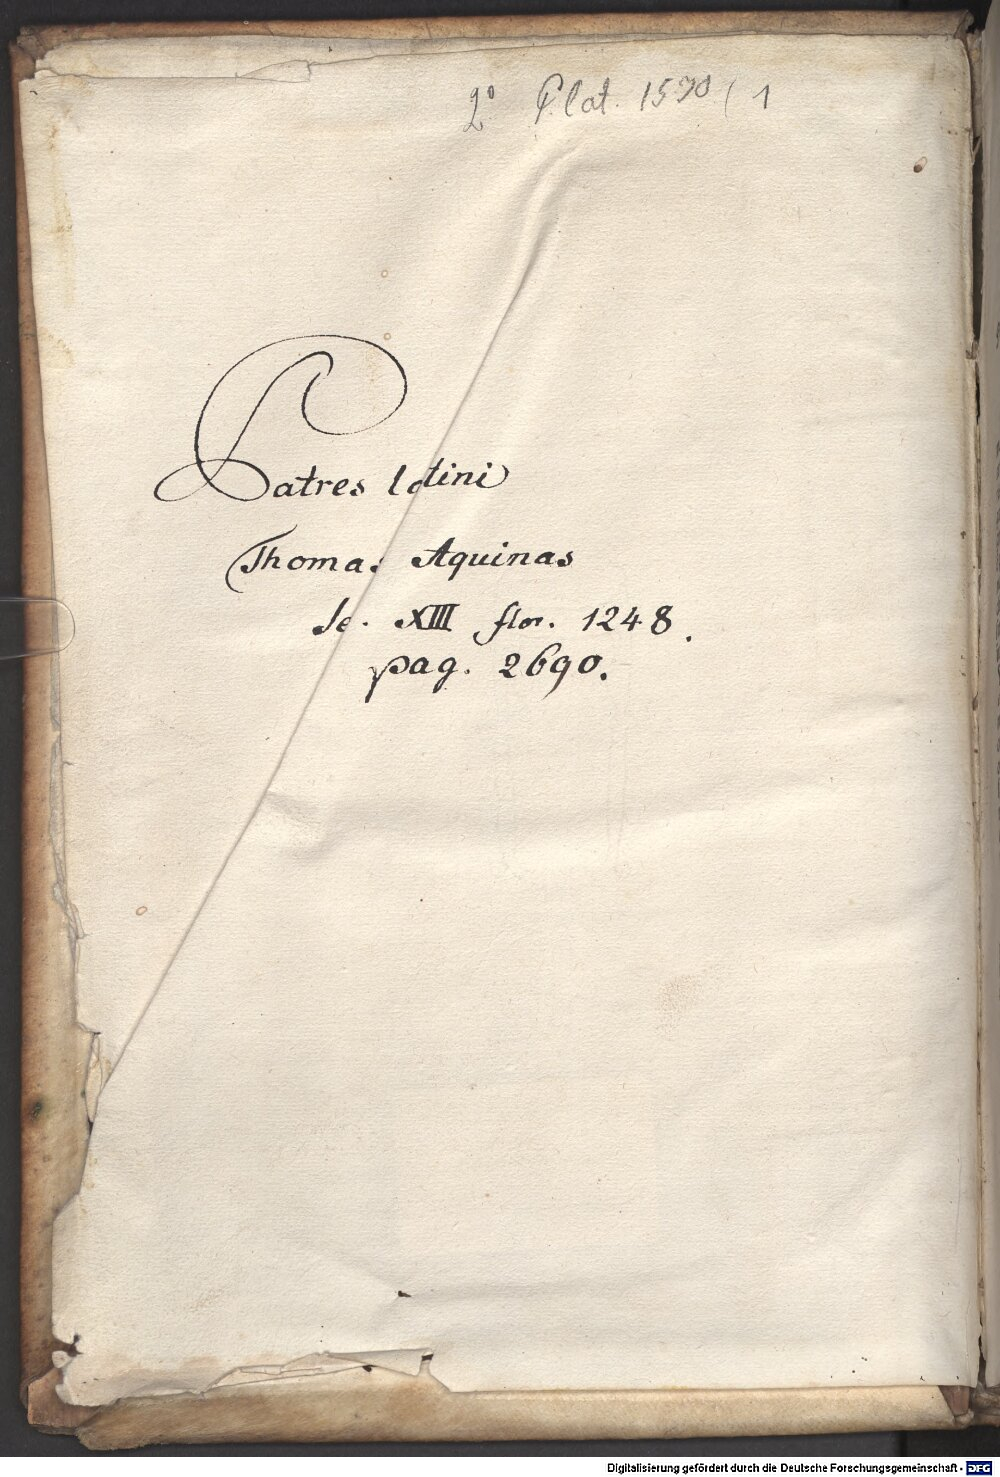 2° P. lat. 1570 (1
Patres latini
Thomas Aquinas
Se. XIII flor. 1248.
pag. 2690.
Digitalisierung gefördert durch die Deutsche Forschungsgemeinschaft - DFG